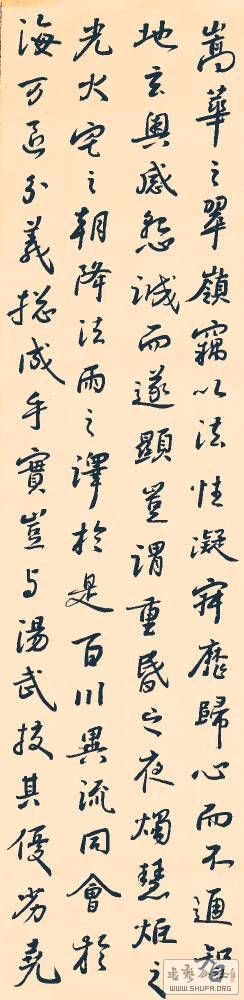 嵩華之翠嶺竊以法性凝寂靡歸心而不通智
地玄奧感懇誠而遂顯豈謂重昏之夜燭慧炬之
光火宅之朝降法雨之澤於是百川異流同會於
海万區分義揔成乎實豈与湯武挍其優劣堯
WWW.SHUFA.ORG